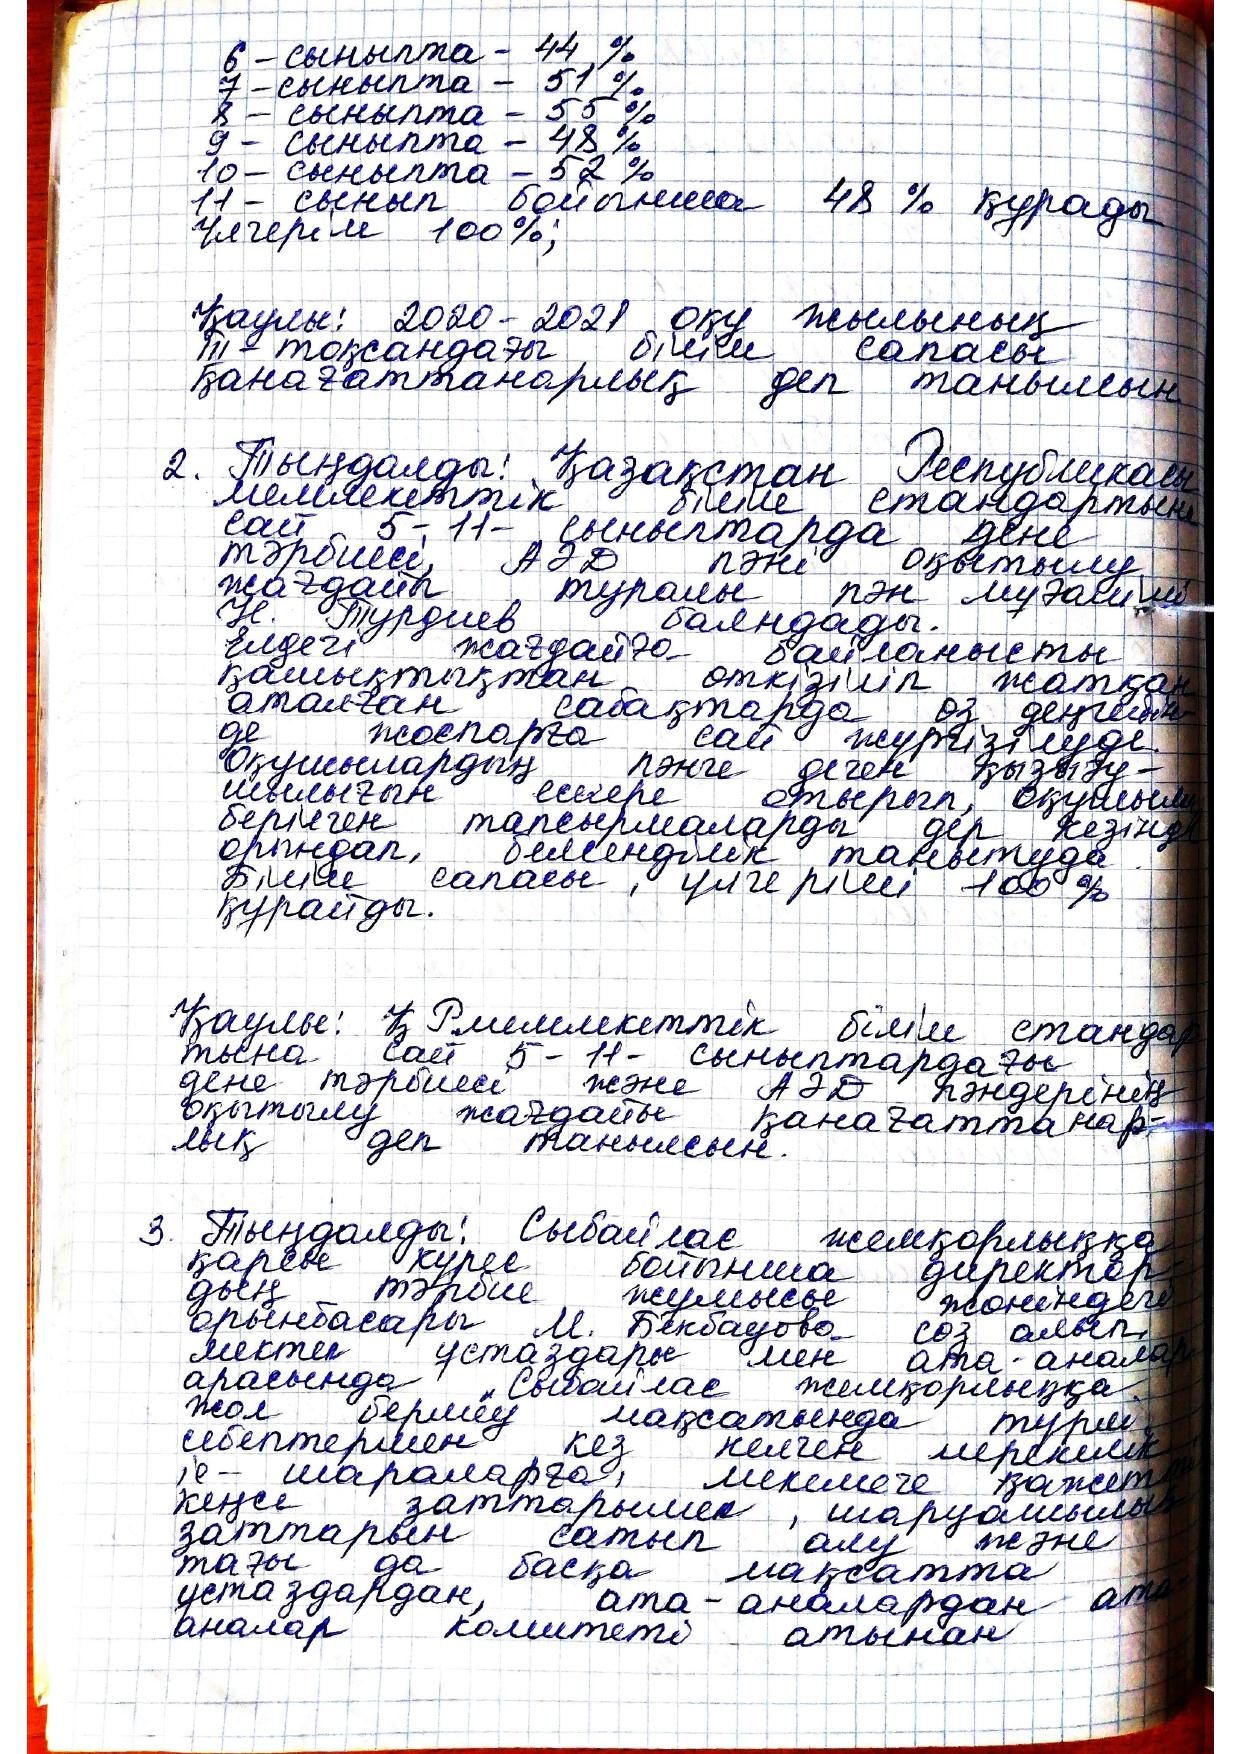 6 – сыныпта – 44 %
7 – сыныпта – 51 %
8 – сыныпта – 55 %
9 – сыныпта – 48 %
10 – сыныпта – 52 %
11 – сынып бойынша 48 % құрады
Үлгерім 100%;
Қаулы: 2020-2021 оқу жылының
III-тоқсандағы білім сапасы
қанағаттанарлық деп танылсын.
2. Тыңдалды: Қазақстан Республикасы
мемлекеттік білім стандартына
сай 5-11- сыныптарда дене
тәрбиесі, АӘД пәні оқытылу
жағдайы туралы пән мұғалімі
Н. Турдиев баяндады.
Елдегі жағдайға байланысты
қашықтықтан өткізіліп жатқан
аталған сабақтарда өз деңгейін-
де жоспарға сай жүргізілуде.
Оқушылардың пәнге деген қызығу-
шылығын ескере отырып, оқушылар
берілген тапсырмаларды дер кезінде
орындап, белсенділік танытуда.
Білім сапасы, үлгерімі 100 %
құрайды.
Қаулы: ҚР мемлекеттік білім стандар
тына сай 5-11- сыныптардағы
дене тәрбиесі және АӘД пәндерінің
оқытылу жағдайы қанағаттанар-
лық деп танылсын.
3. Тыңдалды: Сыбайлас жемқорлыққа
қарсы күрес бойынша директор-
дың тәрбие жұмысы жөніндегі
орынбасары М. Бекбауова сөз алып,
мектеп ұстаздары мен ата-аналар
арасында „Сыбайлас жемқорлыққа
жол бермеу мақсатында түрлі
себептермен кез келген мерекелік
іс-шараларға, мекемеге қажетті
кеңсе заттарымен, шаруашылық
заттарын сатып алу және
тағы да басқа мақсатта
ұстаздардан, ата-аналардан ата-
аналар комитеті атынан